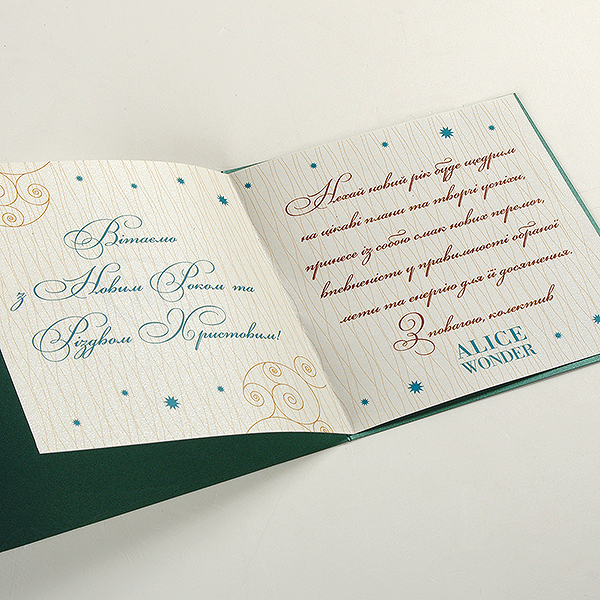 Вітаємо
з Новим Роком та
Різдвом Христовим!
Нехай новий рік буде щедрим
на цікаві плани та творчі успіхи,
принесе із собою смак нових перемог,
впевненість у правильності обраної
мети та енергію для її досягнення.
З повагою, колектив
ALICE
WONDER